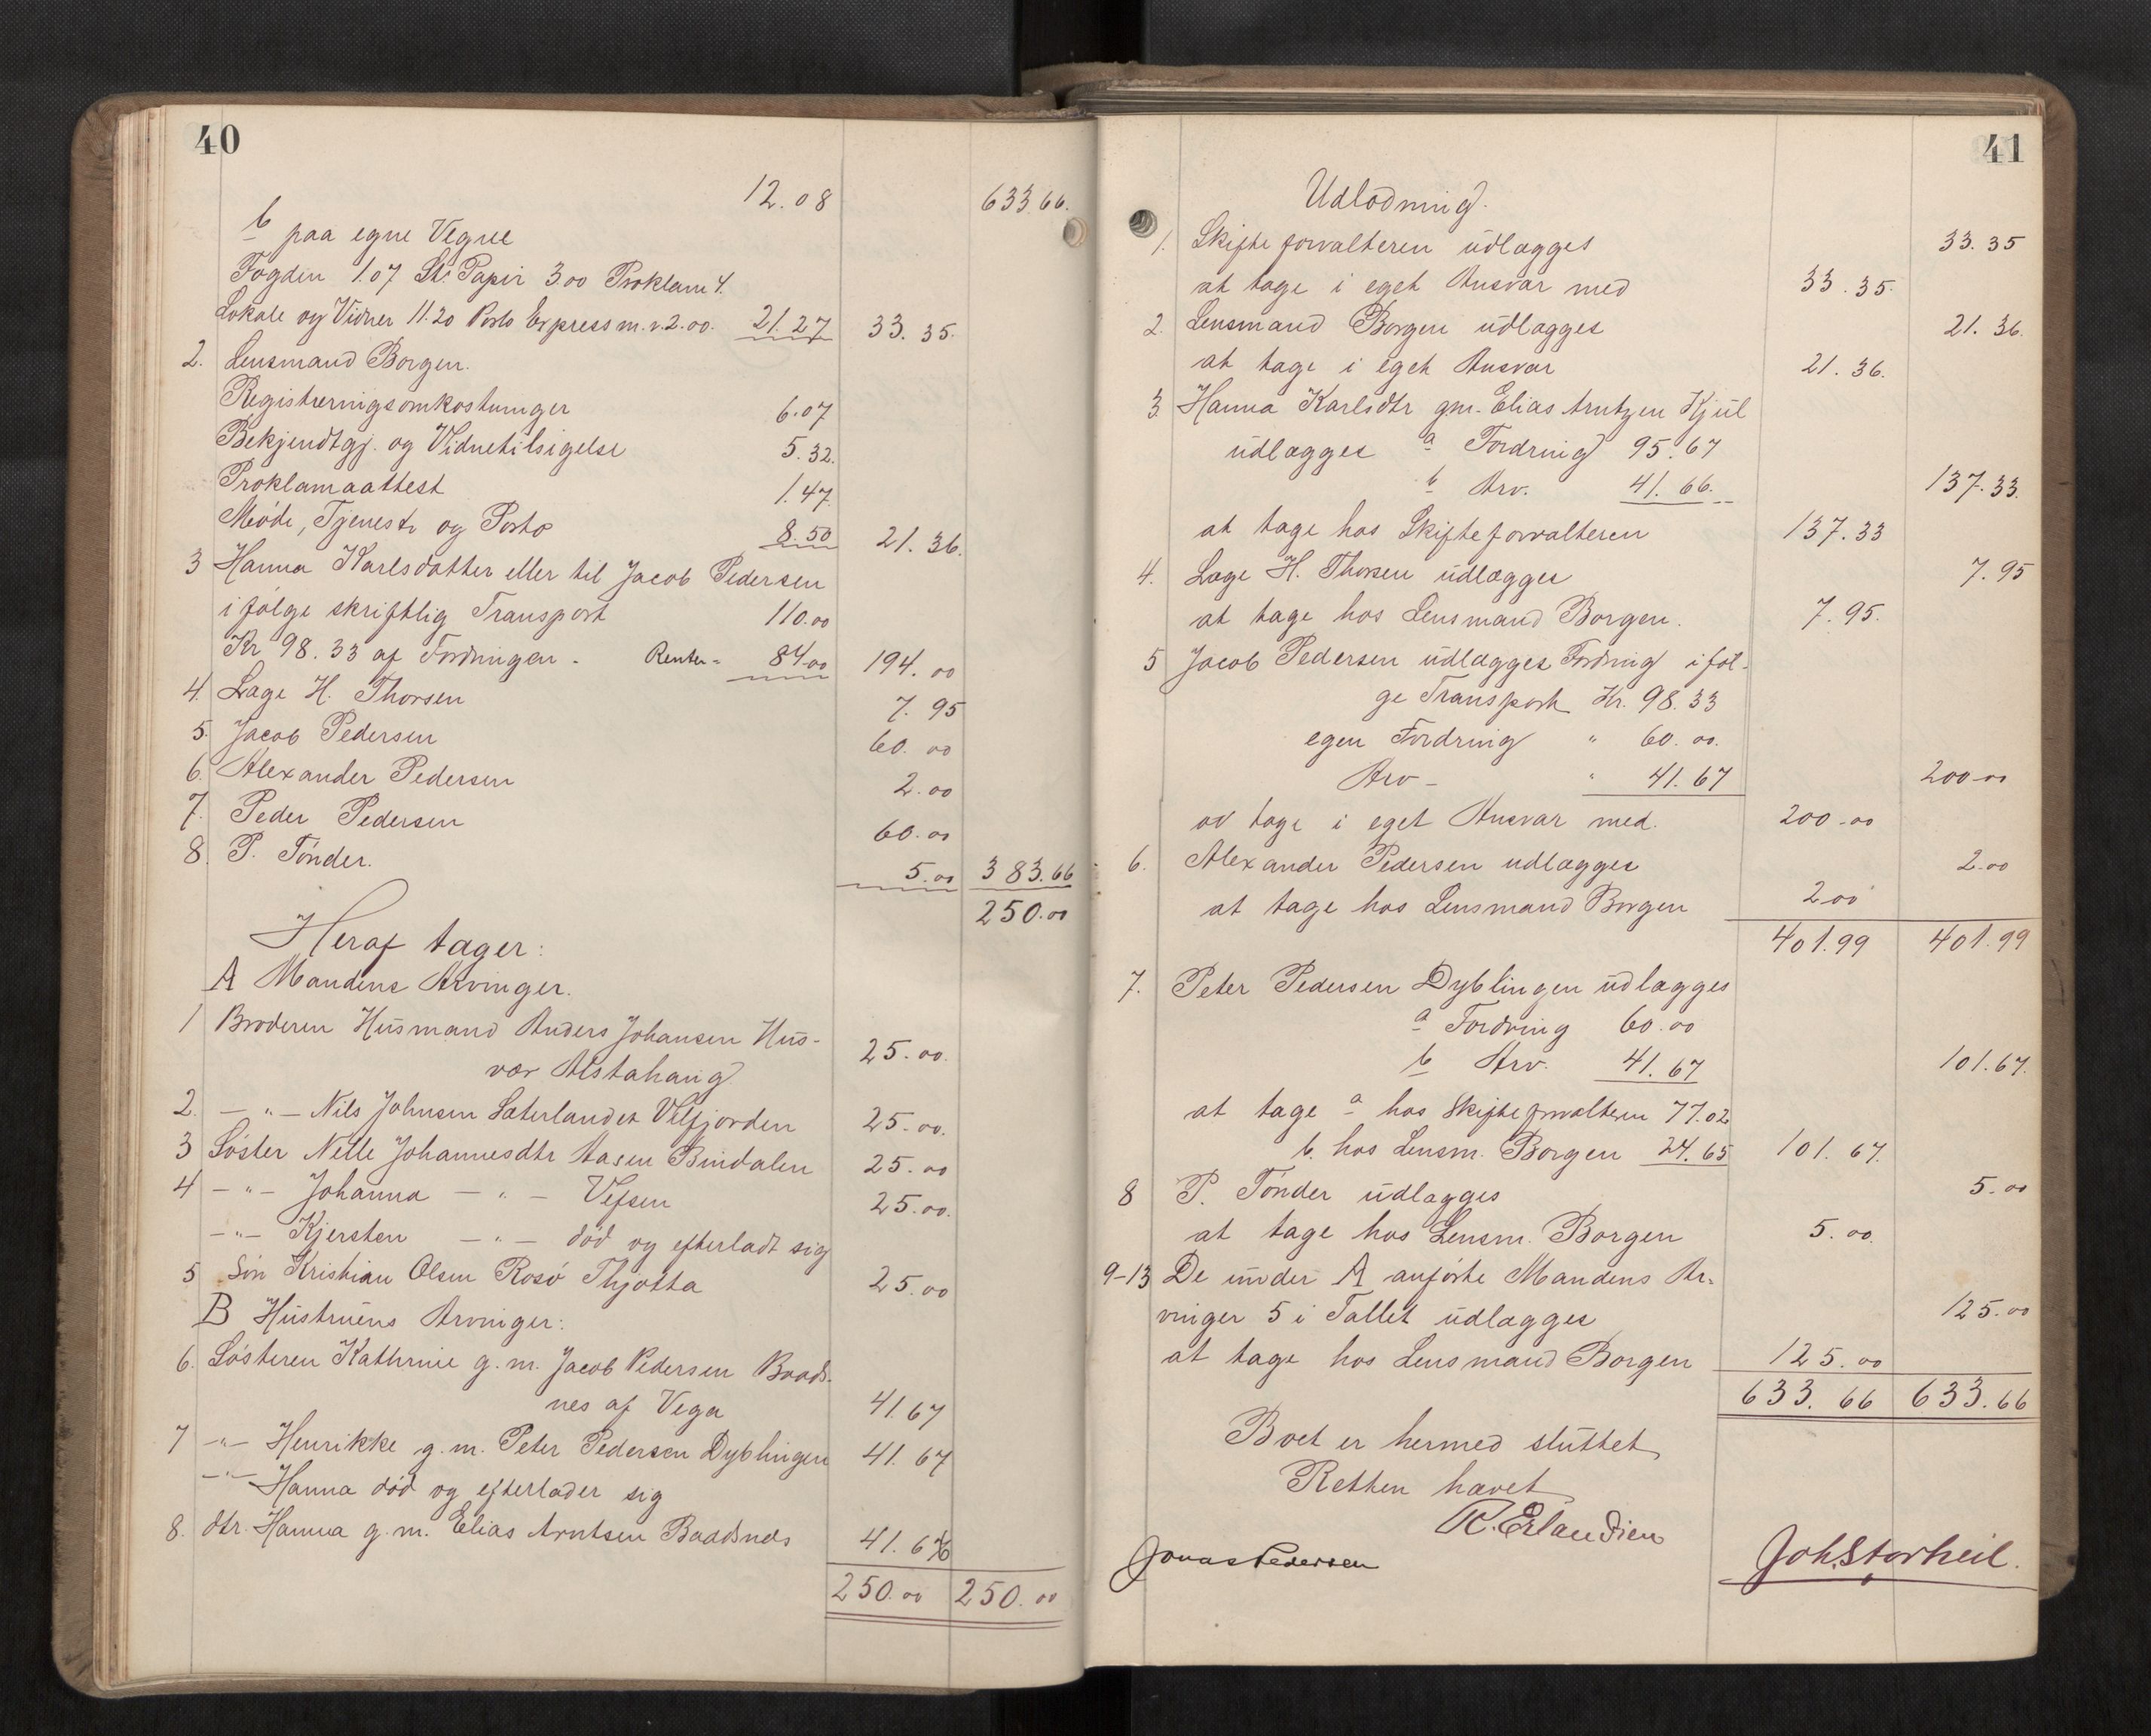 40
12.08 633.66.
b paa egne Vegne
Fogden 1.07 St. Papir 3.00 Proklam 4.
Lokale og Vidner 11.20 Porto Express m.v. 2.00. 21.27 33.35.
2. Lensmand Borgen.
Registreringsomkostninger 6.07
Bekjendtgj. og Vidnetilsigelse 5.32.
Proklamaattest 1.47.
Møde, Tjeneste og Porto 8.50 21.36.
3 Hanna Karlsdatter eller til Jacob Pedersen
ifølge skriftlig Transport 110.00
Kr 98.33 af Fordringen - Renter = 84.00 194.00
4. Lage H. Thorsen 7.95
5. Jacob Pedersen 60.00
6. Alexander Pedersen 2.00
7. Peder Pedersen 60.00
8. P. Tønder. 5.00 383.66
250.00
Heraf tager:
A Mandens Arvinger.
1 Broderen Husmand Anders Johansen Hus-
vær Alstahaug 25.00.
2. -"- Nils Johnsen Sæterlandet Velfjorden 25.00.
3 Søster Nelle Johannesdtr Aasen Bindalen 25.00
4 -"- Johanna -"- Vefsen 25.00.
-"- Kjersten -"- død og efterladt sig
5 Søn Kristian Olsen Rosø Thjøtta 25.00
B Hustruens Arvinger:
6. Søsteren Kathrine g.m. Jacob Pedersen Baads-
nes af Vega 41.67
7 -"- Henrikke g.m. Peter Pedersen Dyblingen 41.67
-"- Hanna død og efterlader sig
8. dtr. Hanna g.m. Elias Arntsen Baadsnes 41.66
250.00 250.00
41
Udlodning.
1. Skifteforvalteren udlægges 33.35
at tage i eget Ansvar med 33.35.
2. Lensmand Borgen udlægges 21.36.
at tage i eget Ansvar 21.36.
3. Hanna Karlsdtr gm. Elias Arntzen Kjul
udlægges a Fordring 95.67
b Arv. 41.66. 137.33.
at tage hos Skifteforvalteren 137.33
4. Lage H. Thorsen udlægges 7.95
at tage hos Lensmand Borgen. 7.95.
5 Jacob Pedersen udlægges Fordring iføl-
ge Transport Kr. 98.33
egen Fordring " 60.00.
Arv - " 41.67 200.00
av tage i eget Ansvar med. 200.00
6. Alexander Pedersen udlægges 2.00
at tage hos Lensmand Borgen 2.00
401.99 401.99
7. Peter Pedersen Dyblingen udlægges
a Fordring 60.00
b Arv. 41.67 101.67.
at tage a hos Skifteforvalteren 77.02
b. hos Lensm. Borgen 24.65 101.67.
8 P. Tønder udlægges 5.00
at tage hos Lensm. Borgen 5.00.
9-13 De under A anførte Mandens Ar-
vinger 5 i Tallet udlægges 125.00
at tage hos Lensmand Borgen 125.00
633.66 633.66
Boet er hermed sluttet
Retten hævet
R. Erlandsen
Jonas Pedersen Joh. Storheil.